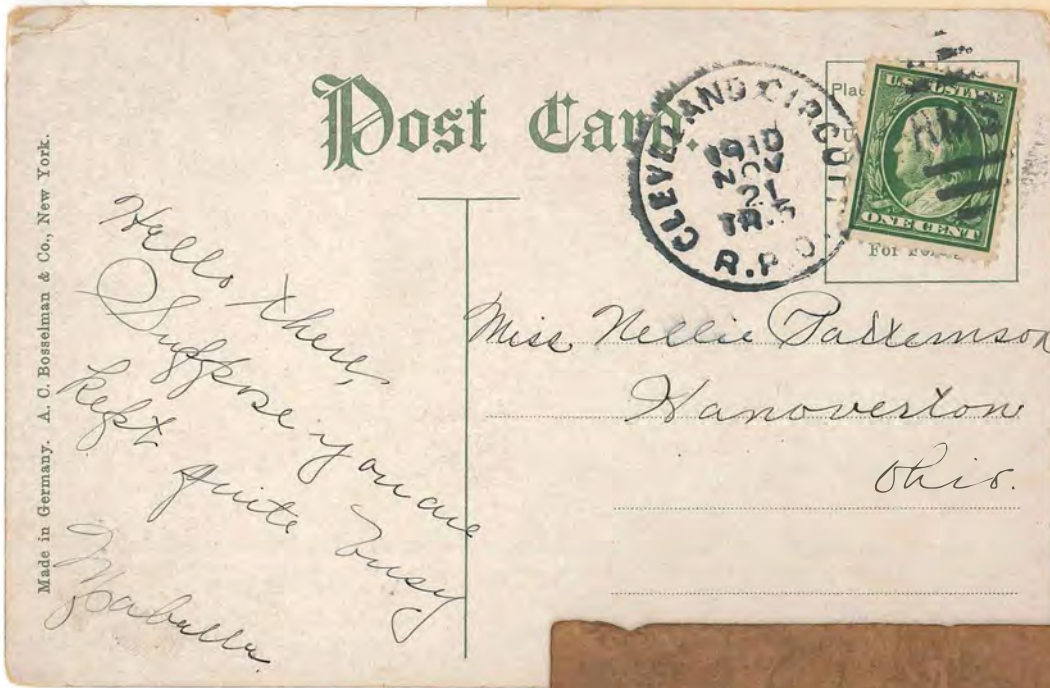 Post Card.
Made in Germany. A. C. Bosselman & Co., New York.
CLEVELAND CIRCUIT
1910
NOV
21
TR. 5
R.P.O.
RMS
U.S. POSTAGE
ONE CENT
Plac
For
Hello there,
Suppose you are
kept quite busy
Maballa.
Miss Nellie Pattemson
Hanoverton
Ohio.